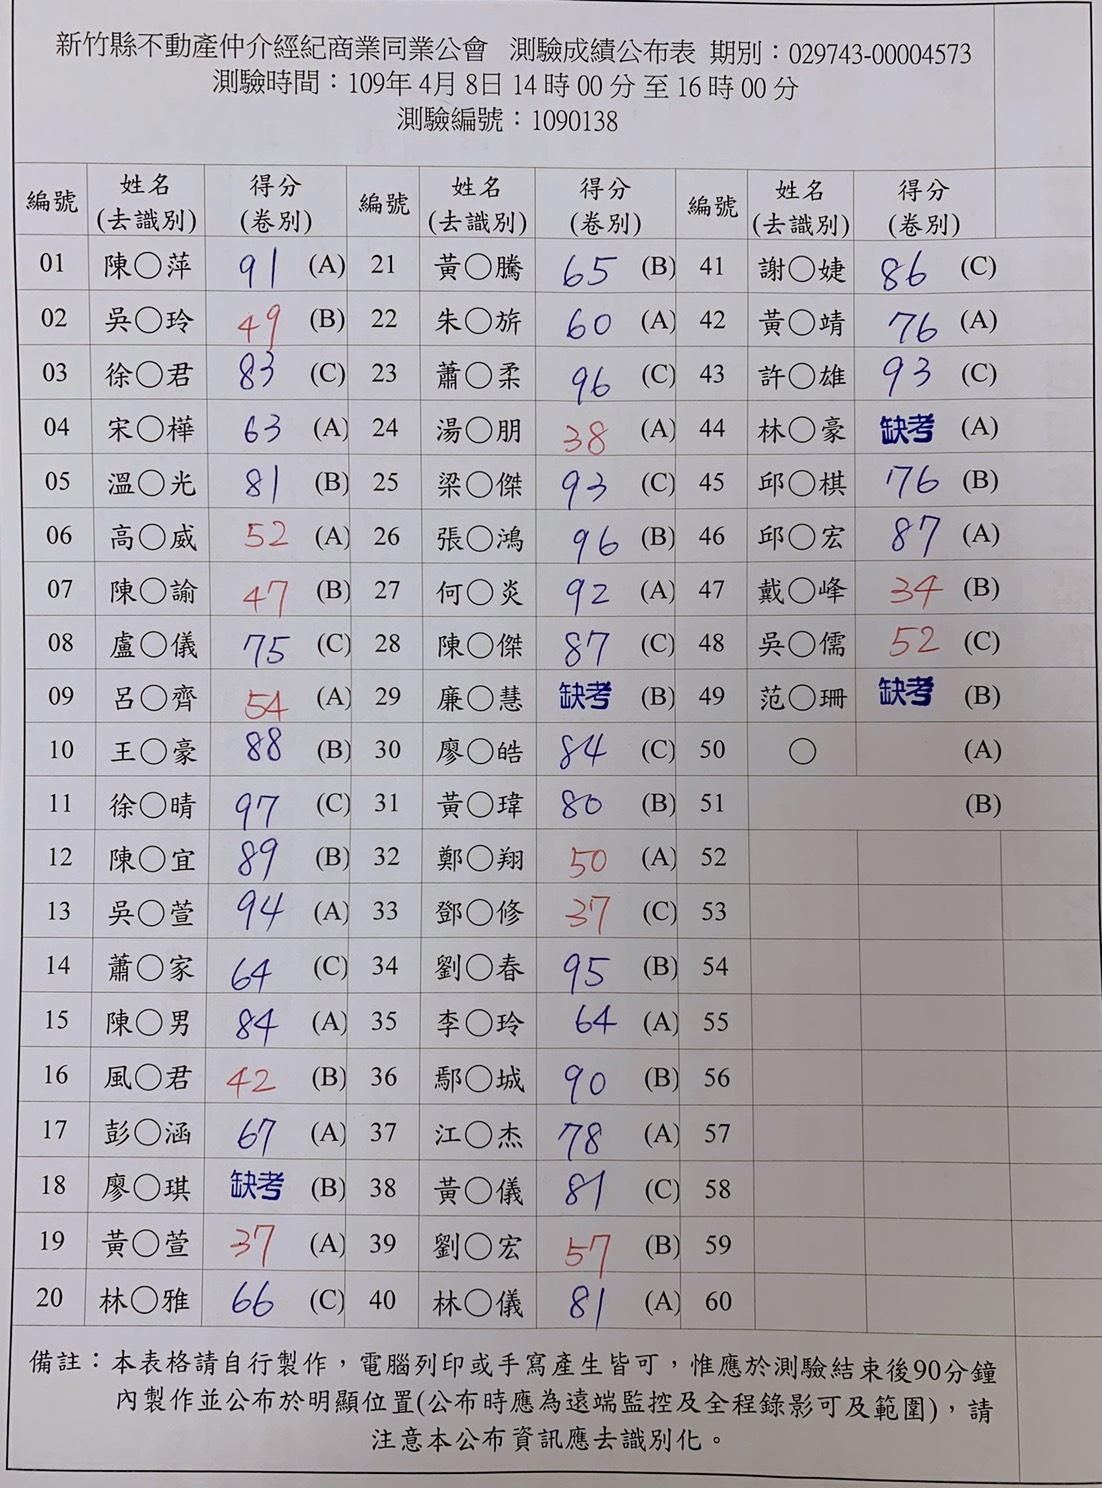 新竹縣不動產仲介經紀商業同業公會 測驗成績公布表 期別：029743-00004573
測驗時間：109年 4月 8日 14 時 00 分 至 16 時 00 分
測驗編號：1090138
編號 姓名(去識別) 得分(卷別) 編號 姓名(去識別) 得分(卷別) 編號 姓名(去識別) 得分(卷別)
01 陳○萍 91 (A) 21 黃○騰 65 (B) 41 謝○婕 86 (C)
02 吳○玲 49 (B) 22 朱○旂 60 (A) 42 黃○靖 76 (A)
03 徐○君 83 (C) 23 蕭○柔 96 (C) 43 許○雄 93 (C)
04 宋○樺 63 (A) 24 湯○朋 38 (A) 44 林○豪 缺考 (A)
05 溫○光 81 (B) 25 梁○傑 93 (C) 45 邱○棋 76 (B)
06 高○威 52 (A) 26 張○鴻 96 (B) 46 邱○宏 87 (A)
07 陳○諭 47 (B) 27 何○炎 92 (A) 47 戴○峰 34 (B)
08 盧○儀 75 (C) 28 陳○傑 87 (C) 48 吳○儒 52 (C)
09 呂○齊 54 (A) 29 廉○慧 缺考 (B) 49 范○珊 缺考 (B)
10 王○豪 88 (B) 30 廖○皓 84 (C) 50 ○ (A)
11 徐○晴 97 (C) 31 黃○瑋 80 (B) 51 (B)
12 陳○宜 89 (B) 32 鄭○翔 50 (A) 52
13 吳○萱 94 (A) 33 鄧○修 37 (C) 53
14 蕭○家 64 (C) 34 劉○春 95 (B) 54
15 陳○男 84 (A) 35 李○玲 64 (A) 55
16 風○君 42 (B) 36 鄢○城 90 (B) 56
17 彭○涵 67 (A) 37 江○杰 78 (A) 57
18 廖○琪 缺考 (B) 38 黃○儀 81 (C) 58
19 黃○萱 37 (A) 39 劉○宏 57 (B) 59
20 林○雅 66 (C) 40 林○儀 81 (A) 60
備註：本表格請自行製作，電腦列印或手寫產生皆可，惟應於測驗結束後90分鐘
內製作並公布於明顯位置(公布時應為遠端監控及全程錄影可及範圍)，請
注意本公布資訊應去識別化。